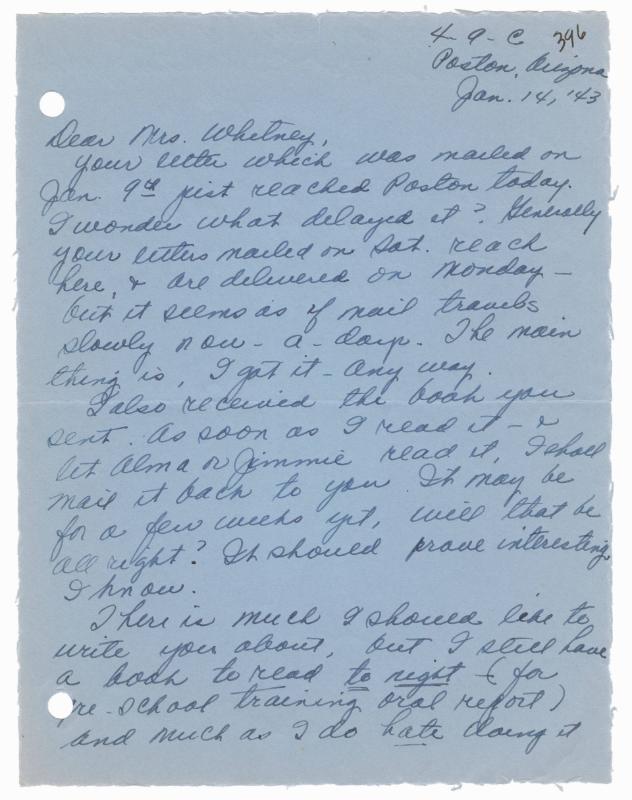 4-9-C 396
Poston, Arizona
Jan. 14, '43
Dear Mrs. Whitney,
Your letter which was mailed on
Jan. 9th just reached Poston today.
I wonder what delayed it? Generally
your letters mailed on Sat. reach
here, & are delivered on Monday –
but it seems as if mail travels
slowly now-a-days. The main
thing is, I got it – any way.
I also received the book you
sent. As soon as I read it – &
let Alma or Jimmie read it, I shall
mail it back to you. It may be
for a few weeks yet, will that be
all right? It should prove interesting
I know.
There is much I should like to
write you about, but I still have
a book to read to night – (for
pre-school training oral report)
and much as I do hate doing it